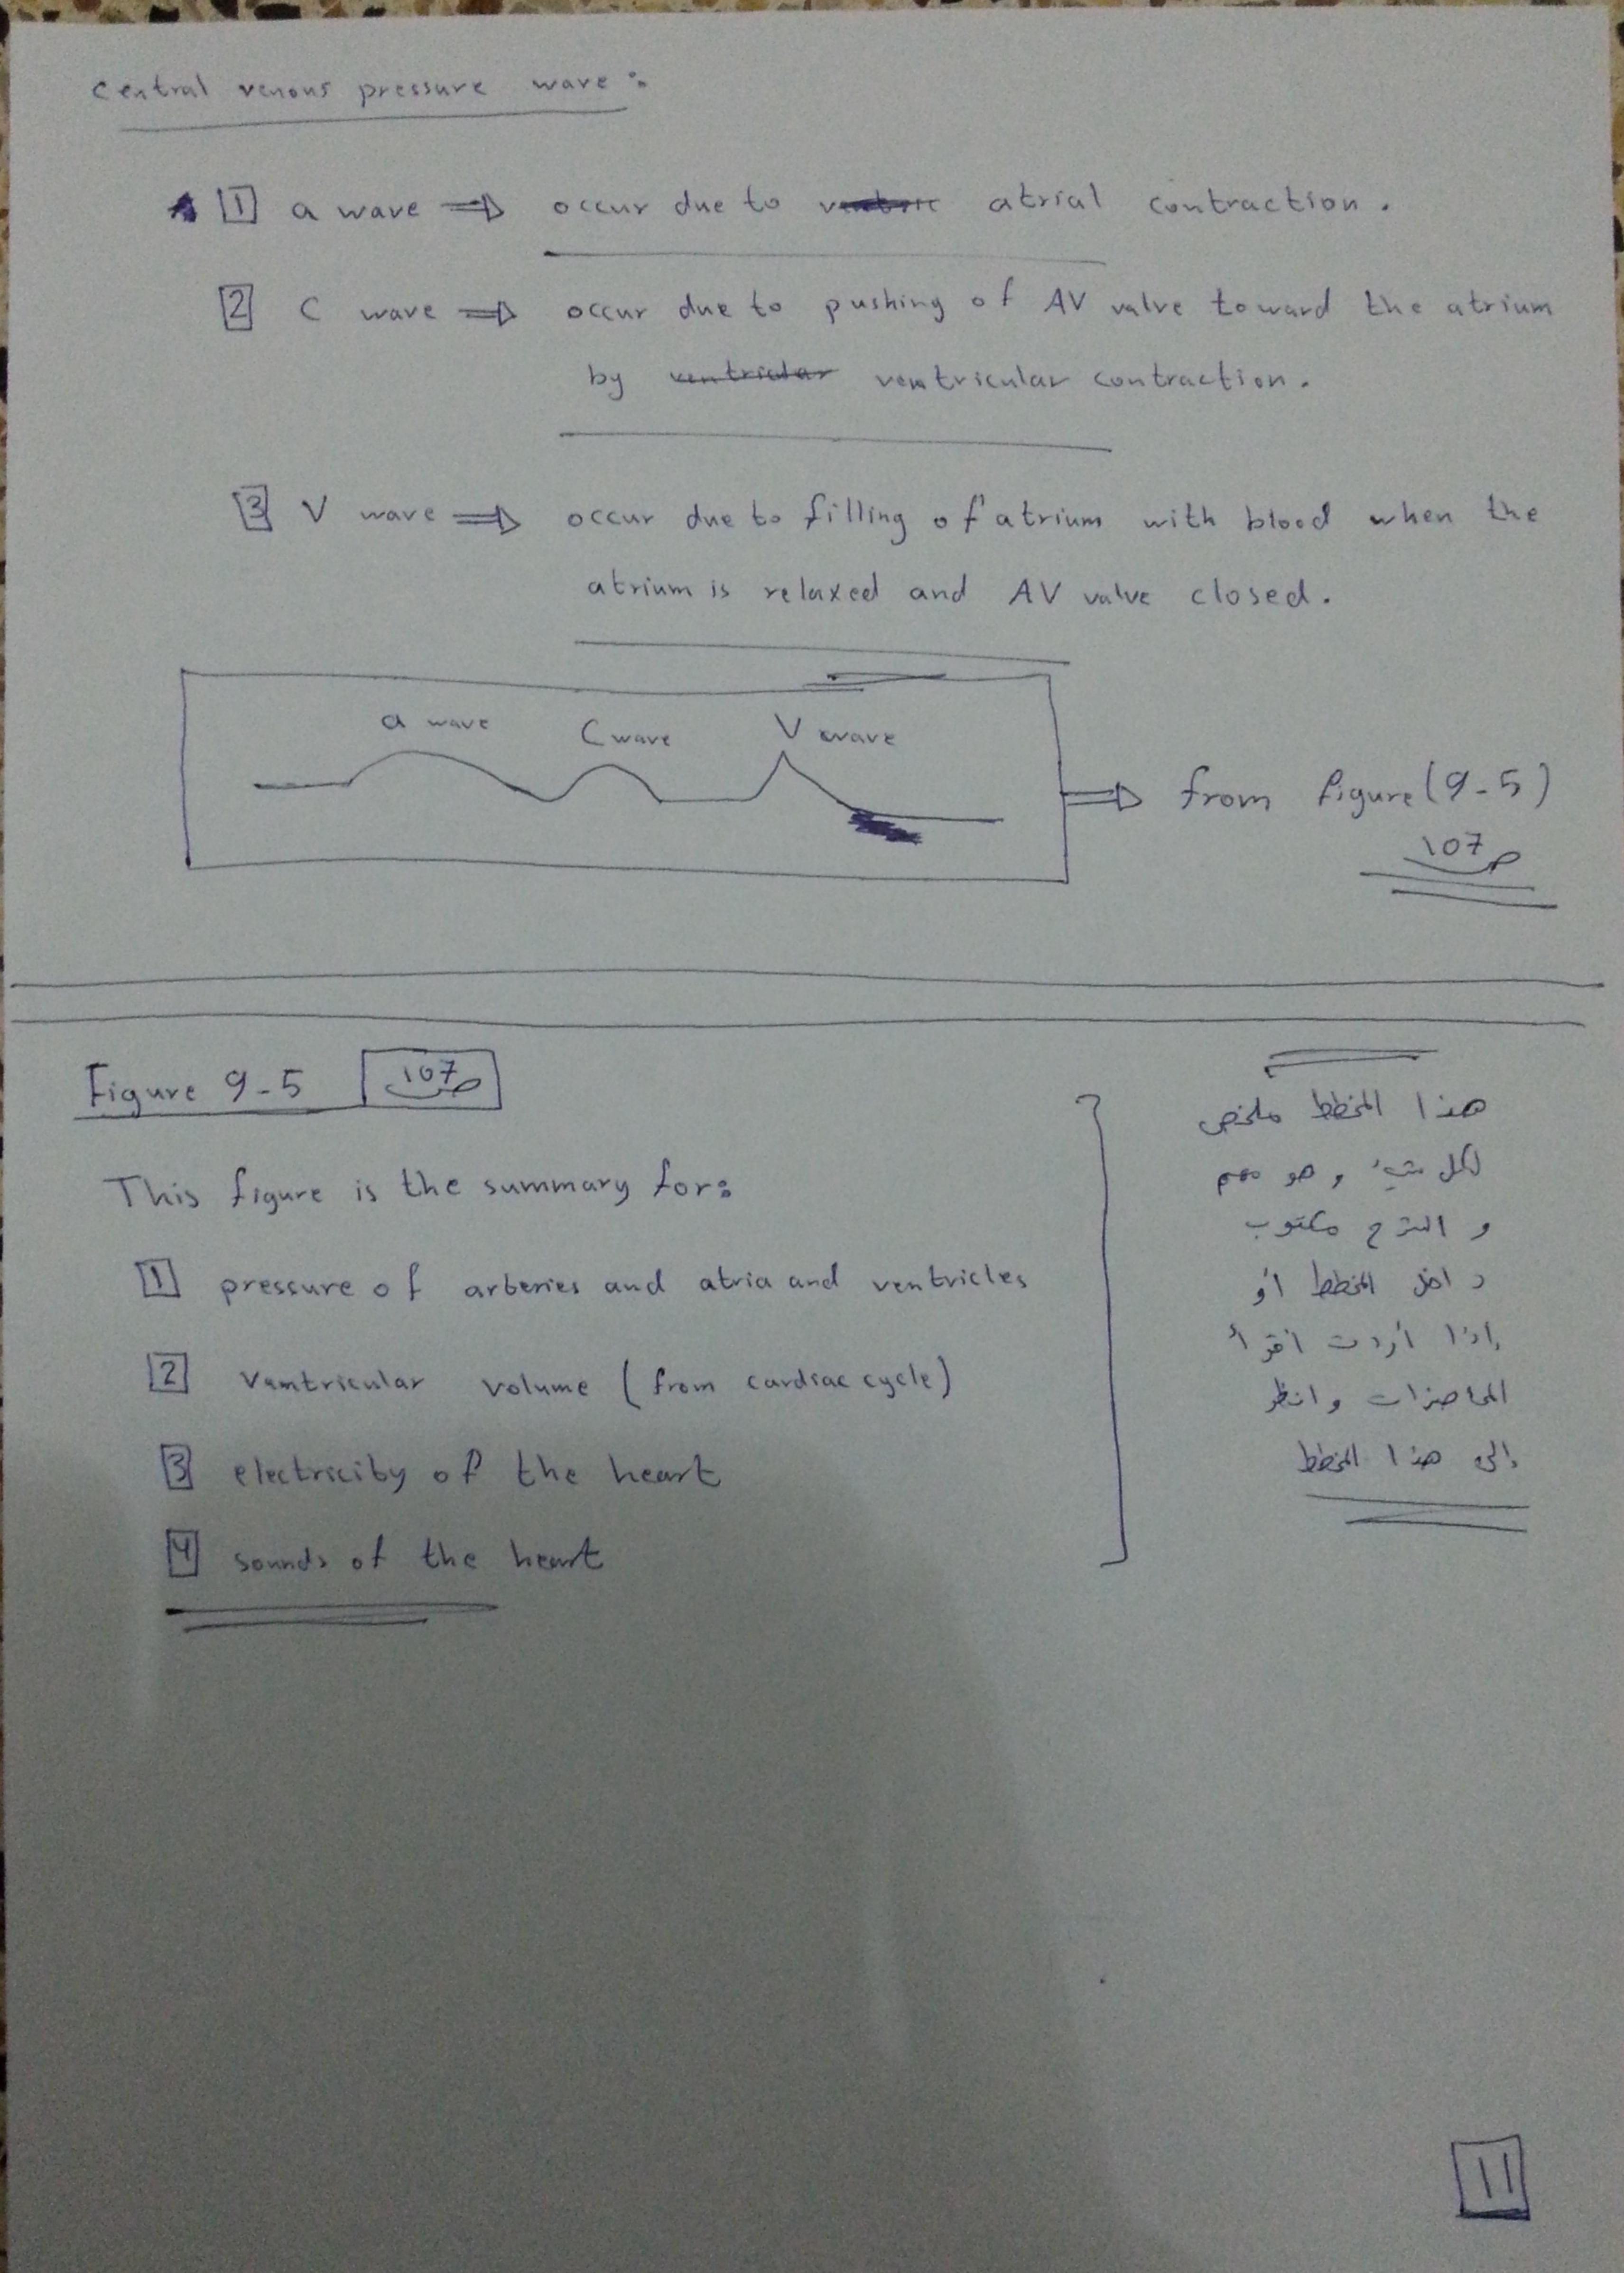 Central venous pressure wave:
1 a wave ⇒ occur due to atrial contraction.
2 C wave ⇒ occur due to pushing of AV valve toward the atrium
by ventricular ventricular contraction.
3 V wave ⇒ occur due to filling of atrium with blood when the
atrium is relaxed and AV valve closed.
a wave C wave V wave
⇒ from figure (9-5)
107 ص
Figure 9-5 107 ص
This figure is the summary for:
1 pressure of arteries and atria and ventricles
2 Ventricular volume (from cardiac cycle)
3 electricity of the heart
4 sounds of the heart
هذا المخطط ملخص
لكل شيء وهو مهم
و الشرح مكتوب
داخل المخطط أو
إذا أردت اقرأ
المحاضرات وانظر
إلى هذا المخطط
11